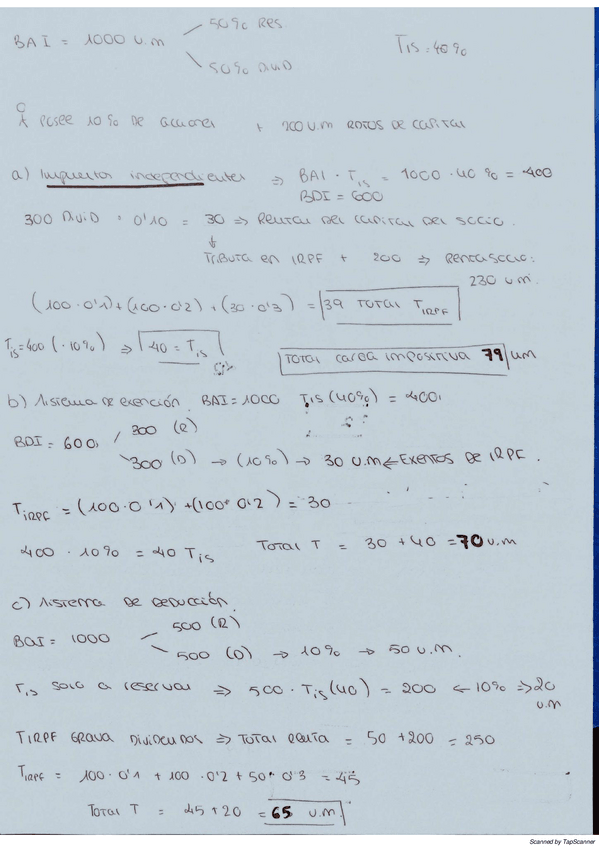 BAI = 1000 u.m
50% RES
50% DIVID
TIS = 40%
A POSEE 10% DE ACCIONES + 200 u.m RDTOS DE CAPITAL
a) Impuestos independientes ⇒ BAI · TIS = 1000 · 40% = 400
BDI = 600
300 DIVID · 0'10 = 30 ⇒ RENTAS DEL CAPITAL DEL SOCIO.
↓
TRIBUTA EN IRPF + 200 ⇒ RENTA SOCIO:
230 u.m.
(100·0'1)+(100·0'2)+(30·0'3) = 39 TOTAL TIRPF
TIS=400 (·10%) ⇒ 40 = TIS
TOTAL CARGA IMPOSITIVA 79 um
b) Sistema de exención. BAI = 1000 TIS (40%) = 400
BDI = 600
300 (R)
300 (D) → (10%) → 30 U.M ← EXENTOS DE IRPF.
TIRPF = (100·0'1) + (100·0'2) = 30
400 · 10% = 40 TIS TOTAL T = 30 + 40 = 70 u.m
c) Sistema DE DEDUCCIÓN.
BAI = 1000
500 (R)
500 (D) → 10% → 50 U.M.
TIS SOLO A reservas ⇒ 500 · TIS (40) = 200 ← 10% ⇒ 20
u.m
TIRPF GRAVA DIVIDENDOS ⇒ TOTAL RENTA = 50 + 200 = 250
TIRPF = 100·0'1 + 100·0'2 + 50·0'3 = 45
TOTAL T = 45 + 20 = 65 u.m
Scanned by TapScanner